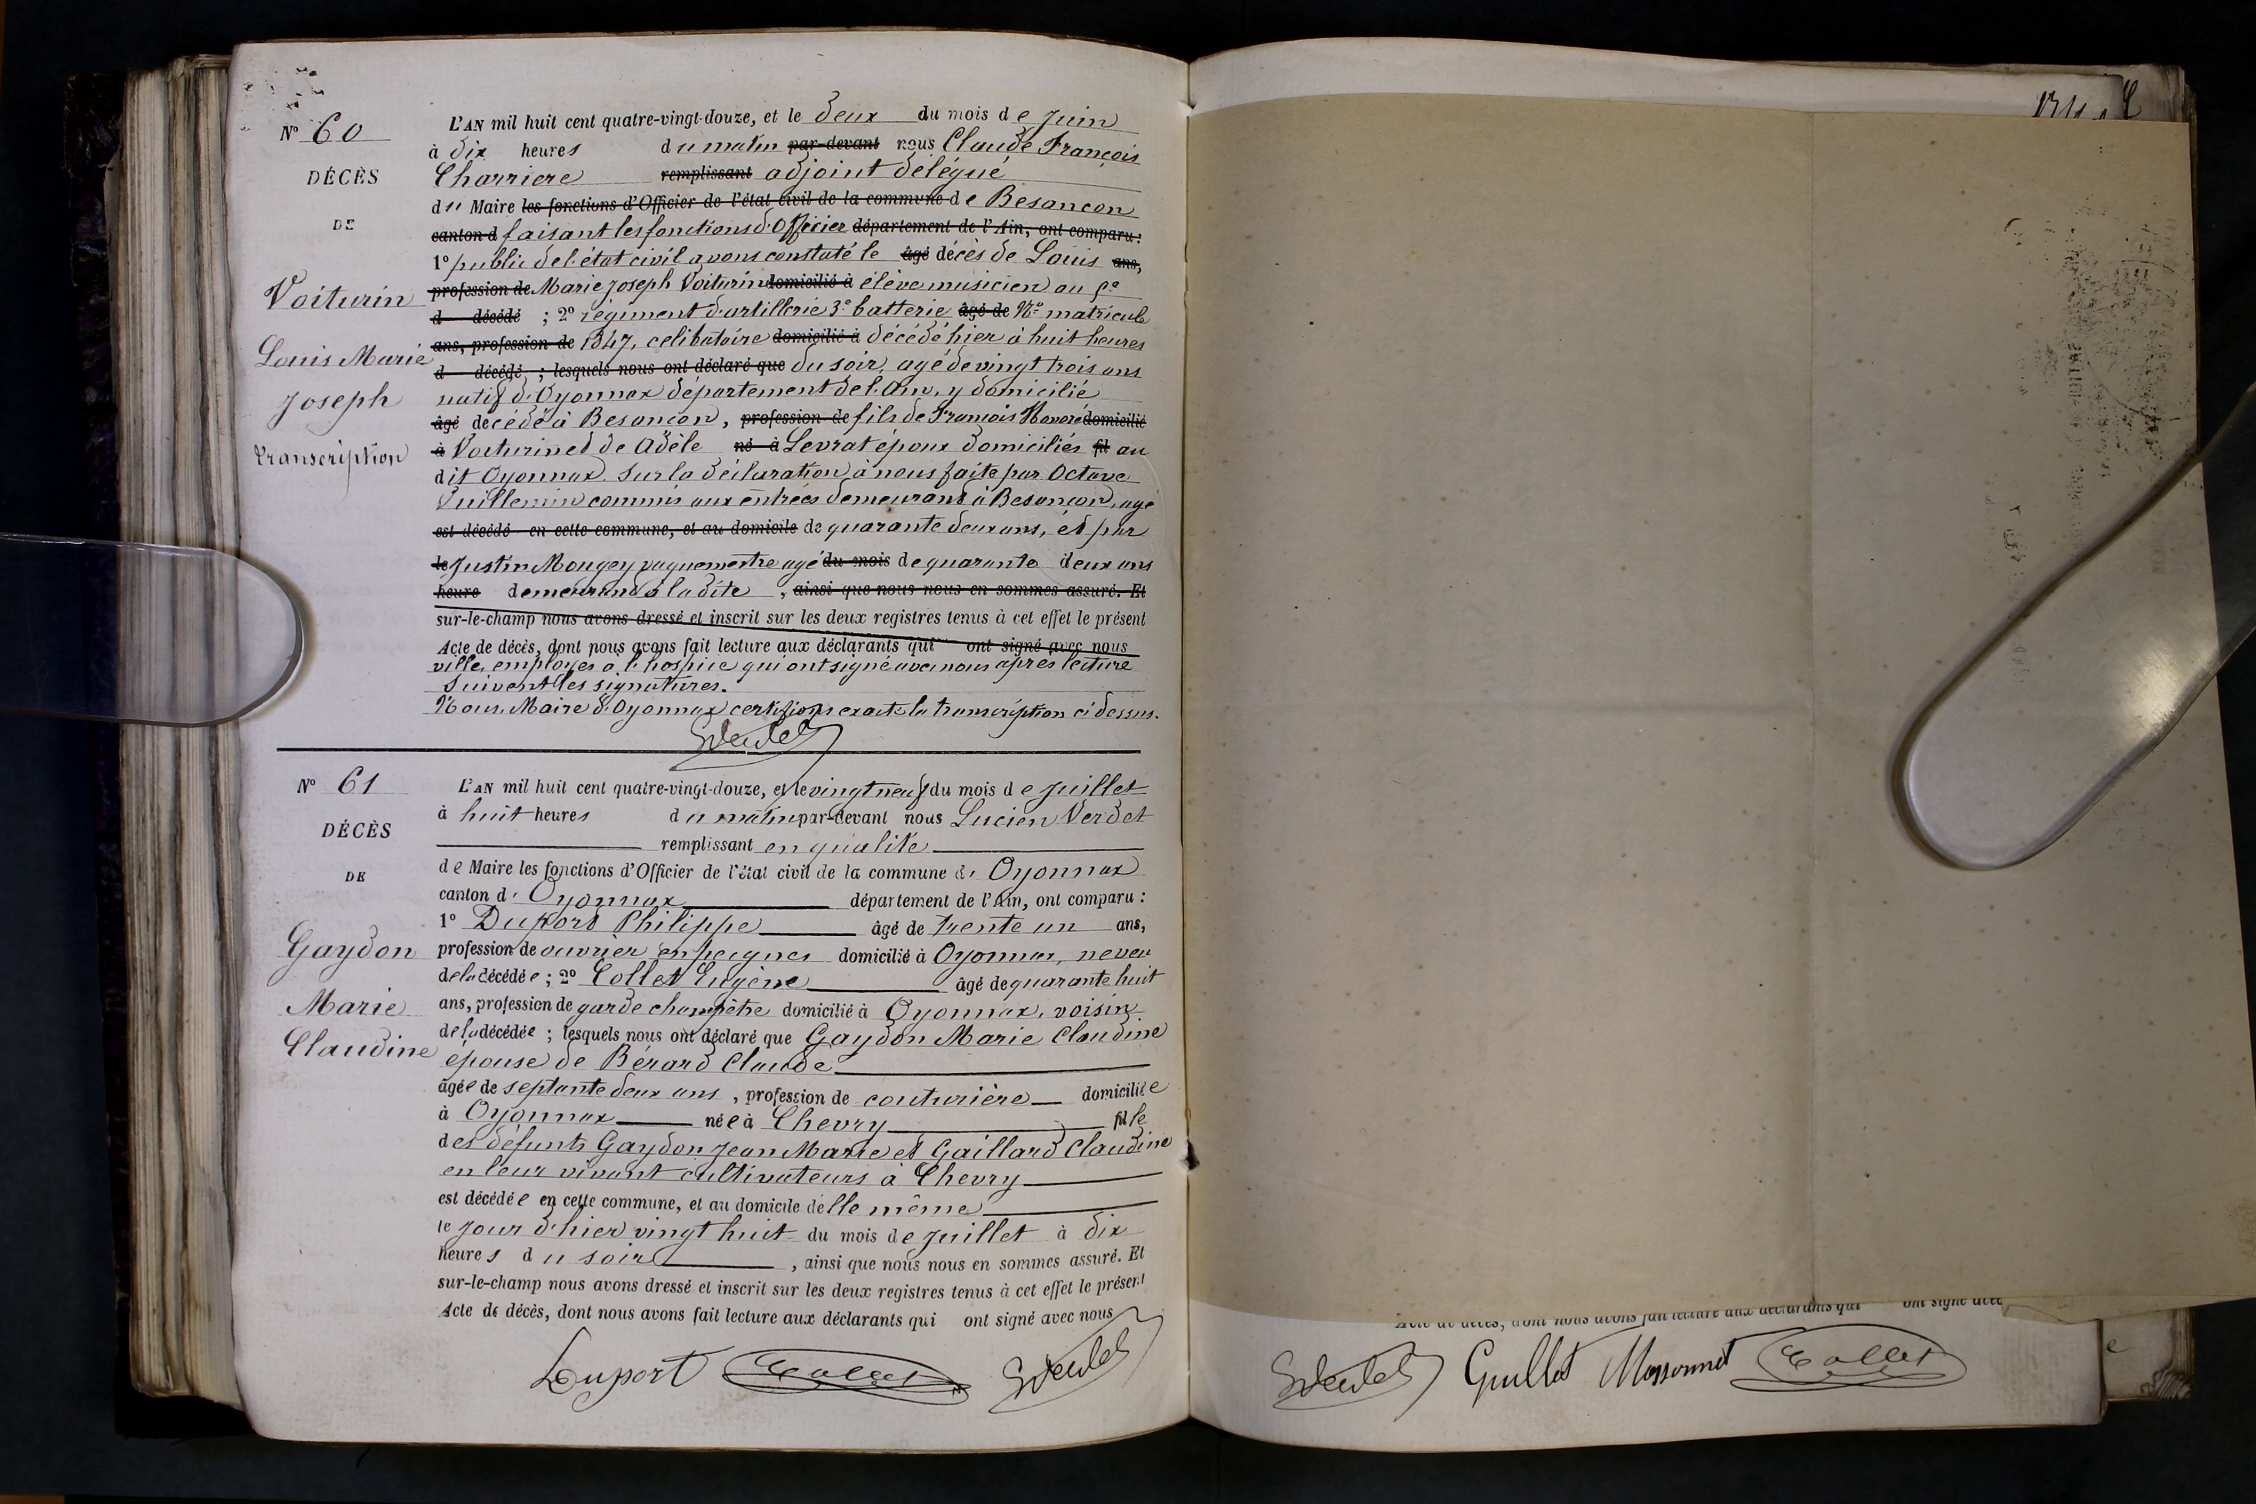 N° 60
DÉCÈS
DE
Voiturin
Louis Marie
Joseph
transcription
L'AN mil huit cent quatre-vingt-douze, et le deux du mois de Juin
à dix heures du matin par-devant nous Claude François
Charriere remplissant adjoint délégué
du Maire les fonctions d'Officier de l'état civil de la commune de Besançon
canton d faisant les fonctions d'Officier département de l'Ain, ont comparu :
1° public de l'état civil avons constaté le âgé décès de Louis ans,
profession de Marie Joseph Voiturin domicilié à élève musicien au 5e
d décédé ; 2° régiment d'artillerie 3e batterie âgé de No matricule
ans, profession de 1347, celibataire domicilié à décédé hier à huit heures
d décédé ; lesquels nous ont déclaré que du soir, agé de vingt trois ans
natif d'Oyonnax département de l'Ain, y domicilié
âgé décédé à Besançon, profession de fils de François Honoré domicilié
à Voiturin et de Adèle né à Levrat époux domiciliés fil au
dit Oyonnax. Sur la déclaration à nous faite par Octave
Vuillemin commis aux entrées demeurant à Besançon, agé
est décédé en cette commune, et au domicile de quarante deux ans, et par
le Justin Mougey vaguemestre agé du mois de quarante deux ans
heure demeurant à la dite , ainsi que nous nous en sommes assuré. Et
sur-le-champ nous avons dressé et inscrit sur les deux registres tenus à cet effet le présent
Acte de décès, dont nous avons fait lecture aux déclarants qui ont signé avec nous
ville, employés à l'hospice qui ont signé avec nous après lecture
Suivent les signatures.
Nous, Maire d'Oyonnax certifions exacte la transcription ci dessus.
N° 61
DÉCÈS
DE
Gaydon
Marie
Claudine
L'AN mil huit cent quatre-vingt-douze, et le vingt neuf du mois de Juillet
à huit heures du matin par-devant nous Lucien Verdet
remplissant en qualité
de Maire les fonctions d'Officier de l'état civil de la commune d' Oyonnax
canton d' Oyonnax département de l'Ain, ont comparu :
1° Duport Philippe âgé de trente un ans,
profession de ouvrier en peignes domicilié à Oyonnax, neveu
de la décédée ; 2° Collet Eugène âgé de quarante huit
ans, profession de garde champêtre domicilié à Oyonnax, voisin
de la décédée ; lesquels nous ont déclaré que Gaydon Marie Claudine
épouse de Bérard Claude
âgée de septante deux ans , profession de couturière domiciliée
à Oyonnax née à Chevry fille
des défunts Gaydon Jean Marie et Gaillard Claudine
en leur vivant cultivateurs à Chevry
est décédée en cette commune, et au domicile d'elle même
le jour d'hier vingt huit du mois de Juillet à dix
heures du soir , ainsi que nous nous en sommes assuré. Et
sur-le-champ nous avons dressé et inscrit sur les deux registres tenus à cet effet le présent
Acte de décès, dont nous avons fait lecture aux déclarants qui ont signé avec nous
Duport Collet Verdet
Acte de décès, dont nous avons fait lecture aux déclarants qui ont signé avec
Verdet Guillot Collet